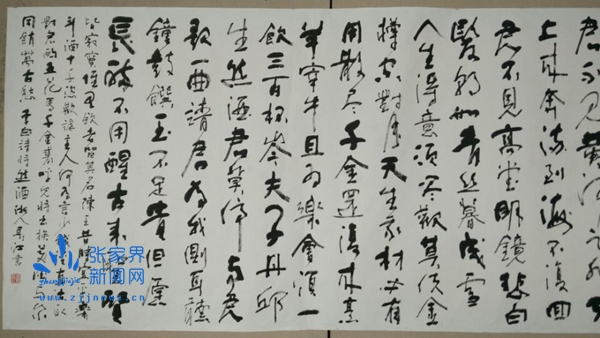 君不见黄河之水
上来奔流到海不復回
君不見高堂明鏡悲白
髮朝如青丝暮成雪
人生得意须尽歡莫使金
樽空對月天生我材必有
用散尽千金還復来烹
羊宰牛且为樂會須一
飲三百杯岑夫子丹邱
生进酒君莫停与君
歌一曲請君为我側耳聽
鐘鼓饌玉不足貴但
長醉不用醒古来聖賢
皆寂寞惟有飲者留其名陳王昔時宴平樂
斗酒十千恣歡謔主人何为言少钱沽取
對君酌五花馬千金裘呼兒将出换美酒与尔
同銷萬古愁李白詩将進酒湘人江書
张家界
新闻网